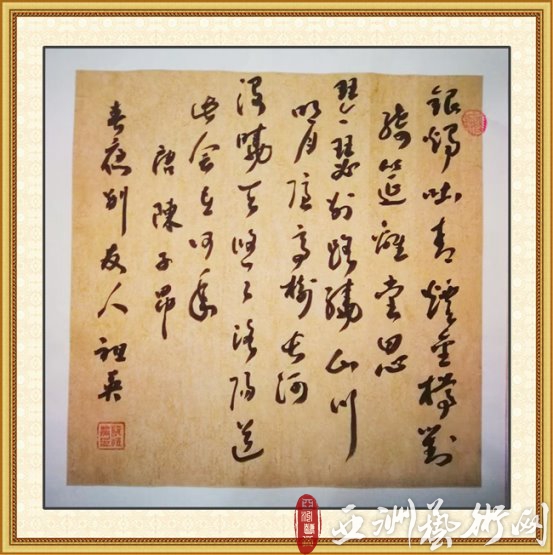 銀燭吐青煙金樽對
綺筵離堂思
琴瑟別路繞山川
明月隱高樹長河
沒曉天悠々洛陽道
此會在何年
唐陳子昂
春夜別友人 祖英
亚洲藝術网